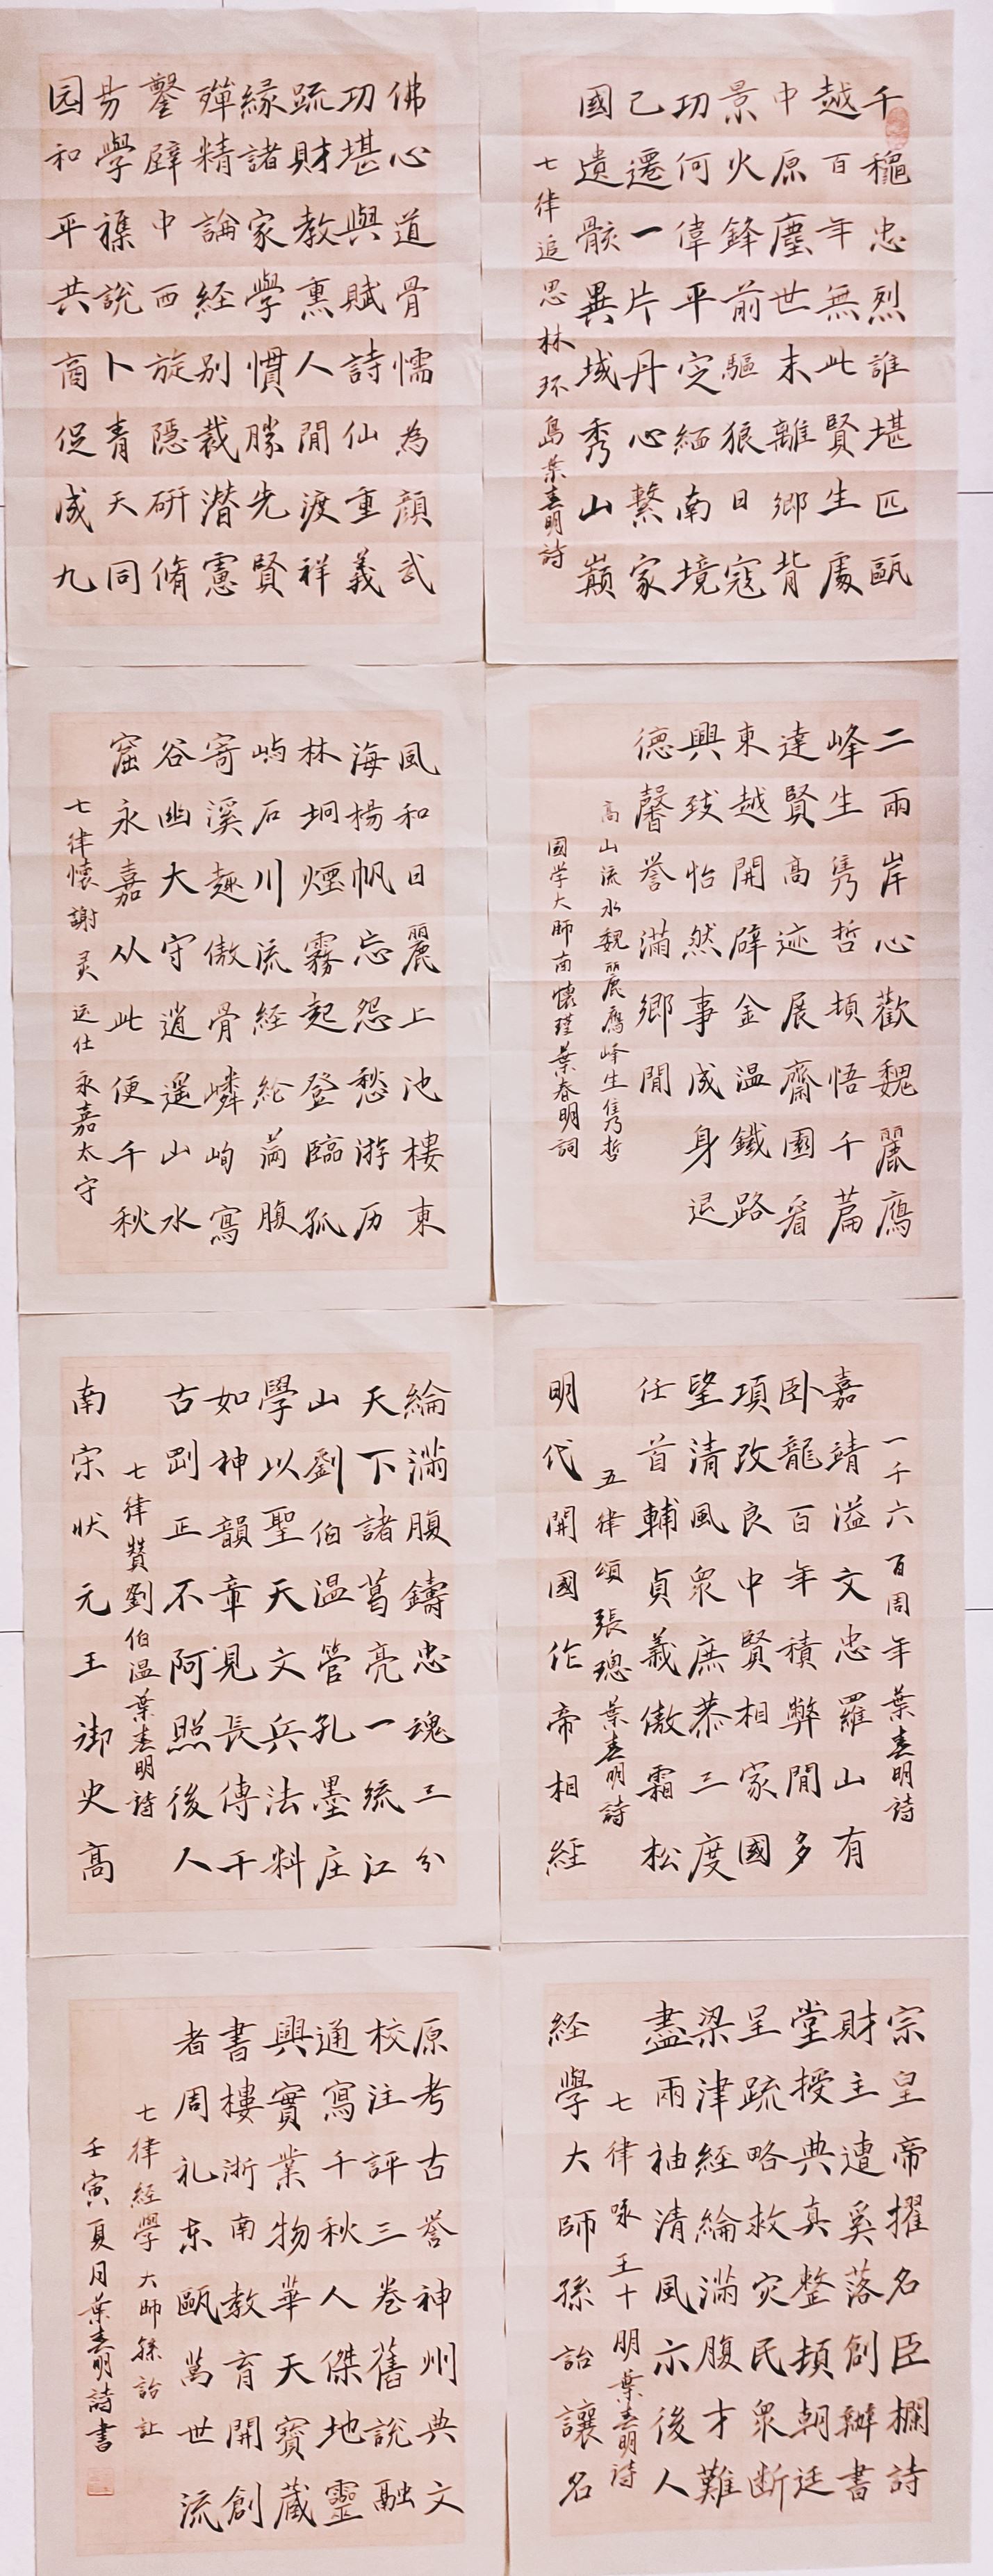 千穐忠烈誰堪匹甌
越百年無此賢生處
中原塵世末離鄉背
景火鋒前驅狼日寇
功何偉平定緬南境
己遷一片丹心繫家
國遺骸異域秀山巔
七律追思林环島葉春明詩
佛心道骨懦為顏武
功堪與賦詩仙重義
疏財教熏人間渡祥
緣諸家學慣勝先賢
殫精論経别裁潜憲
鑿辟中西旋隱研脩
易學襍說卜青天同
园和平共商促成九
二兩岸心歡魏麗鴈
峰生雋哲頓悟千萹
達賢高迹展齋園看
東越開辟金温鐵路
興致怡然事成身退
德馨誉滿鄉間
高山流水魏麗鴈峰生隽哲
國学大師南懷瑾葉春明詞
風和日麗上池樓東
海揚帆忘怨愁游历
林坰煙霧起登臨孤
屿石川流経纶满腹
寄溪趣傲骨嶙峋寫
谷幽大守逍遥山水
窟永嘉从此便千秋
七律懷謝灵运仕永嘉太守
一千六百周年葉春明詩
嘉靖溢文忠羅山有
卧龍百年積弊間多
項改良中賢相家國
望清風衆庶恭三度
任首輔貞義傲霜松
五律頌張璁葉春明詩
明代開國作帝相経
綸滿腹鑄忠魂三分
天下諸葛亮一统江
山劉伯温管孔墨庄
學以聖天文兵法料
如神韻章見長傳千
古剛正不阿照後人
七律贊劉伯温葉春明詩
南宋状元王御史高
宗皇帝擢名臣欄詩
財主遭奚落創辦書
堂授典真整頓朝廷
呈疏略救灾民衆断
梁津経綸滿腹才難
盡兩袖清風示後人
七律咏王十朋葉春明詩
経學大師孫詒讓名
原考古誉神州典文
校注評三卷舊說融
通寫千秋人傑地靈
興實業物華天寶蔵
書樓浙南教育開創
者周礼东甌萬世流
七律経學大師孫詒让
壬寅夏月葉春明詩書